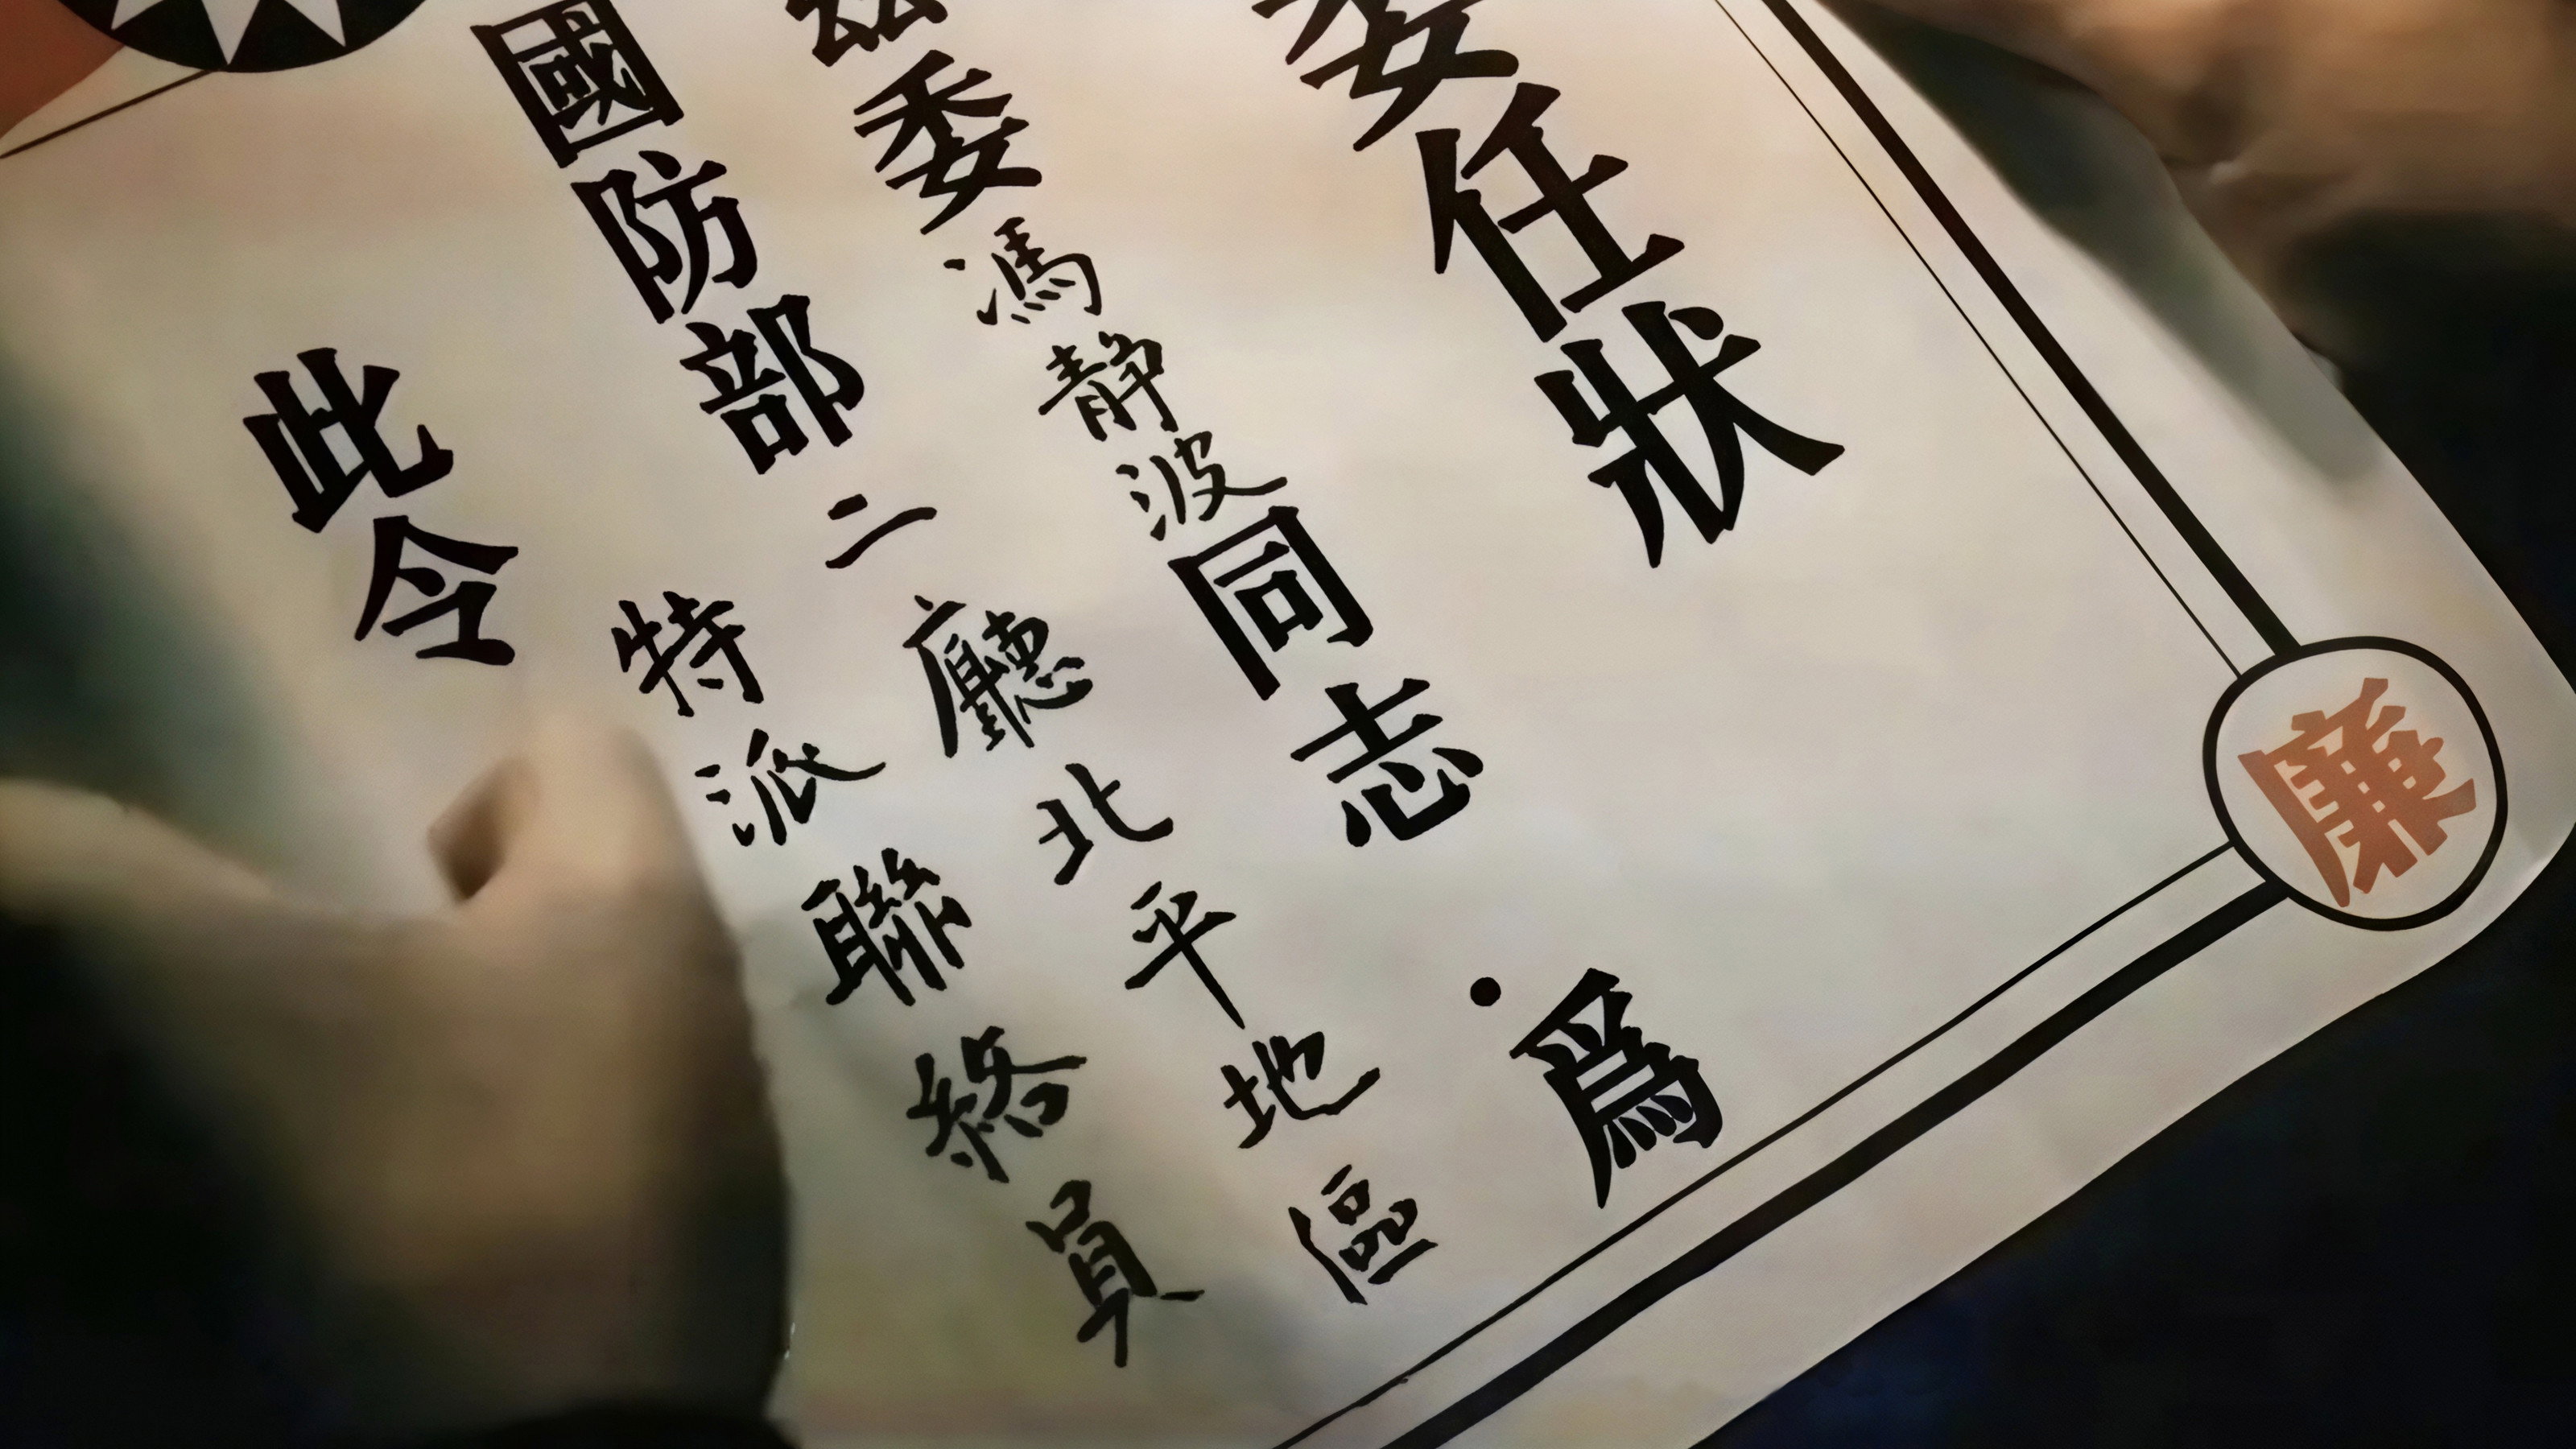 委任狀
茲委馮靜波同志為
國防部二廳北平地區
特派聯絡員
此令
廉